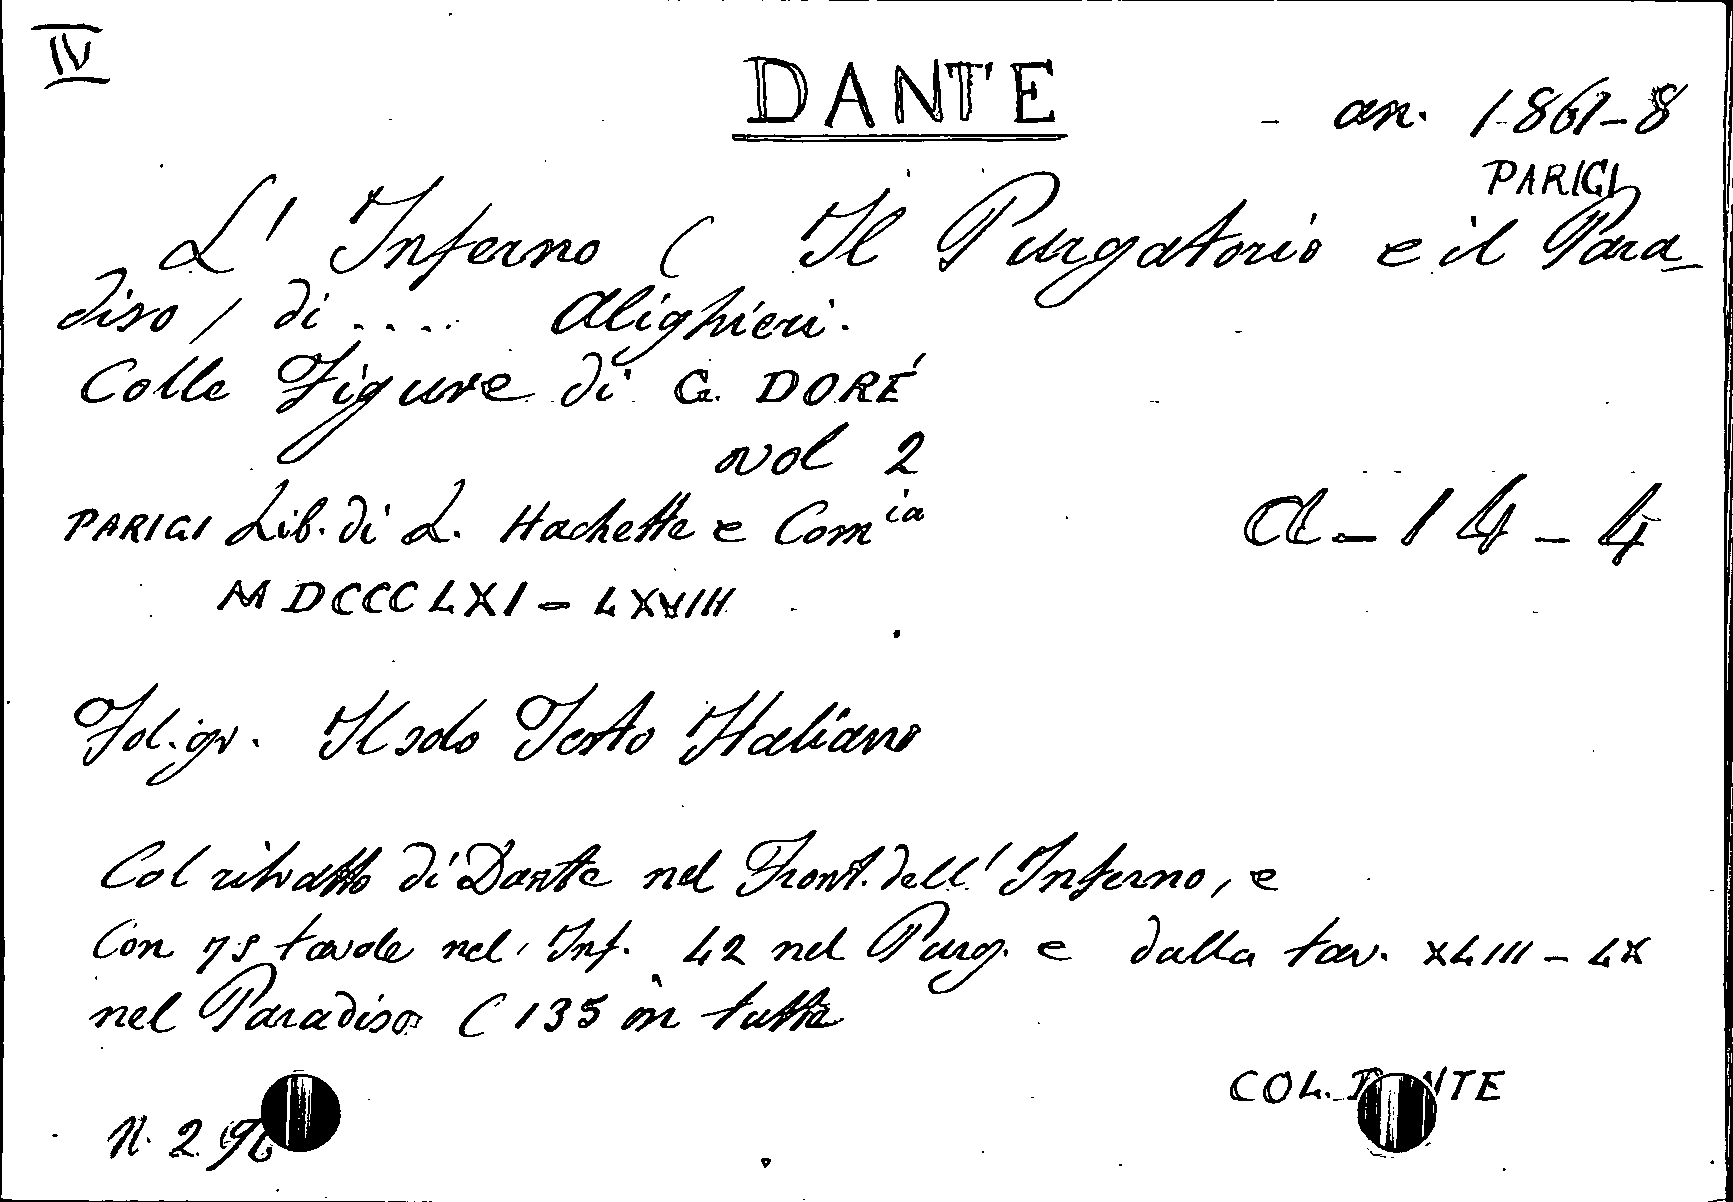 IV
DANTE
- an. 1861-8
PARIGI
L' Inferno ( Il Purgatorio e il Para_
diso / di .... Alighieri.
Colle Figure di G. DORÉ
vol 2
PARIGI Lib. di L. Hachette e Com ia
a - 14 - 4
MDCCCLXI - LXVIII
Fol. gr. Il solo Testo Italiano
Col ritratto di Dante nel Front. dell' Inferno, e
Con 75 tavole nel Inf. 42 nel Purg. e dalla tav. XLIII - LX
nel Paradiso ( 135 in tutte
COL. DANTE
N. 2